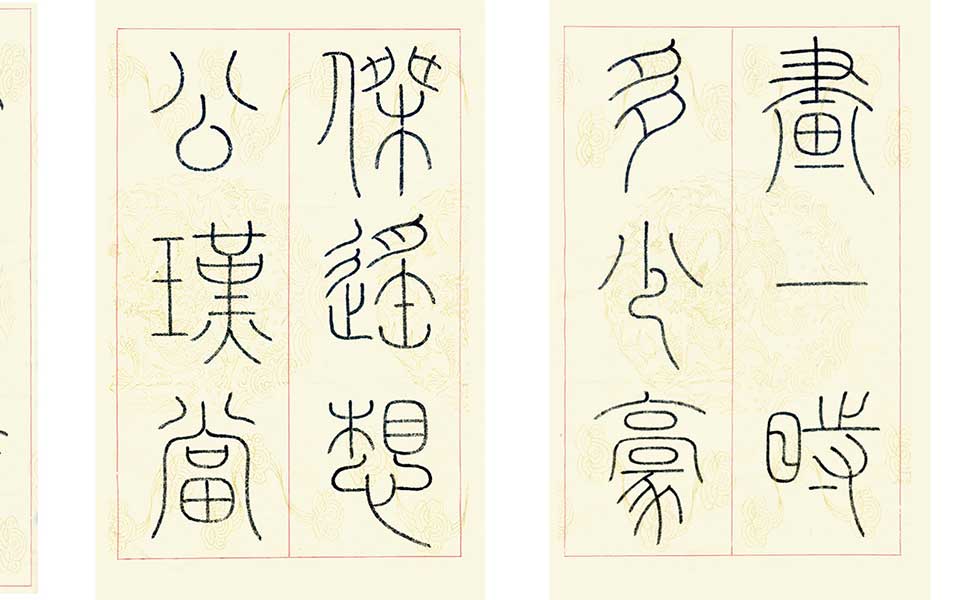 畫一時
多少豪
傑遙想
公瑾當